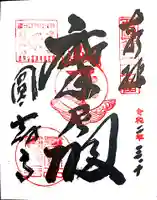 奉拝
令和二年 三・十
摩尼殿
圓教寺